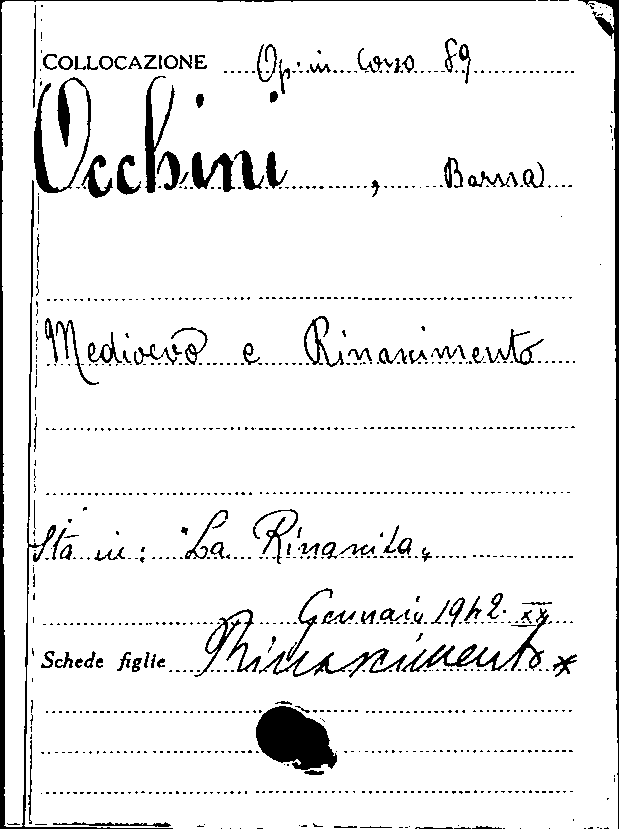 COLLOCAZIONE Op. in Corso 89
Occhini, Barna
Medioevo e Rinascimento
Sta in: "La Rinascita"
Gennaio 1942. XX
Schede figlie Rinascimento *